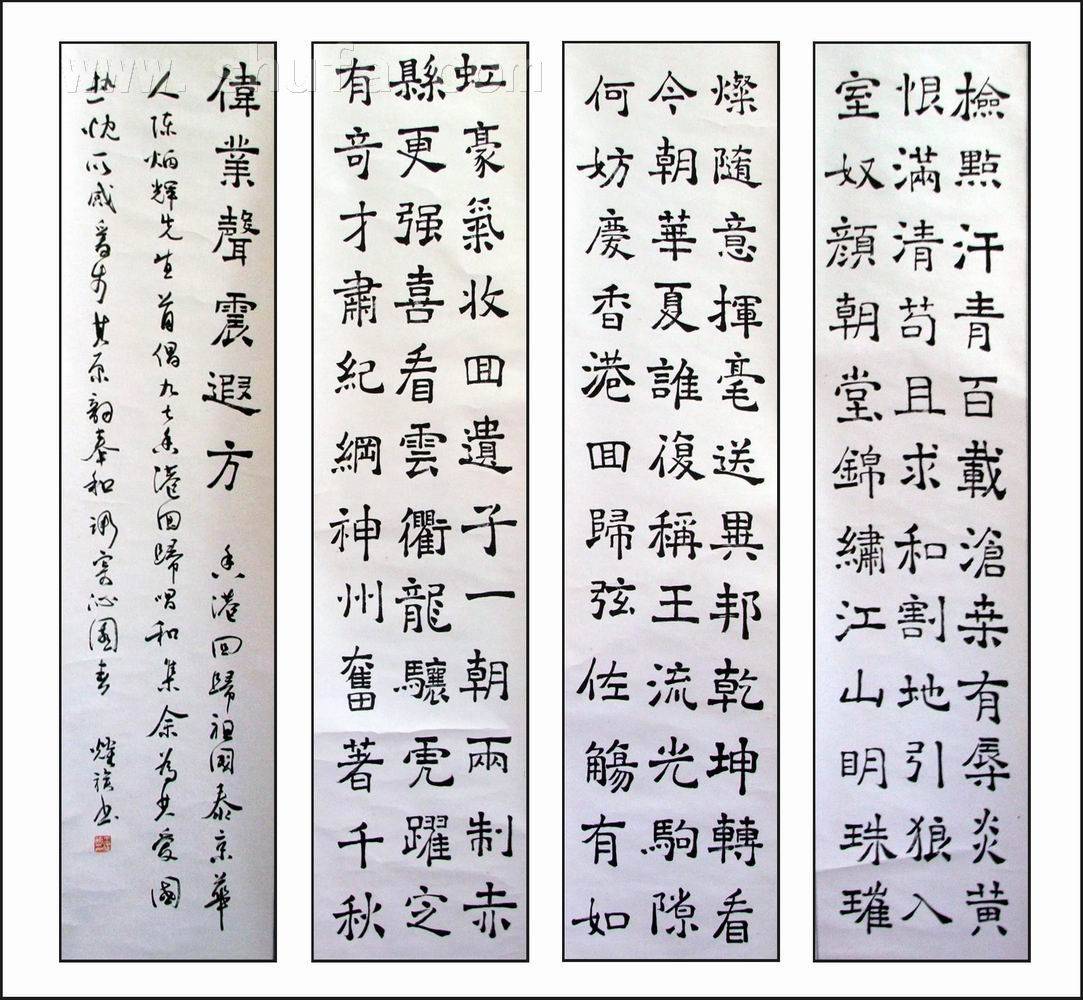 檢點汗青百載滄桒有辱炎黃
恨滿清苟且求和割地引狼入
室奴顏朝堂錦繡江山眀珠璀
燦隨意揮毫送異邦乾坤轉看
今朝華夏誰復稱王流光駒隙
何妨慶香港囬歸弦佐觴有如
虹豪氣收囬遺子一朝兩制赤
縣更强喜看雲衢龍驤虎躍定
有奇才肅紀綱神州奮著千秋
偉業聲震遐方 香港回歸祖國泰京華
人陈炳輝先生首倡九七香港回歸唱和集余为其愛國
热忱所感爰步其原韵奉和调寄沁園春 耀书
www.shufa.com